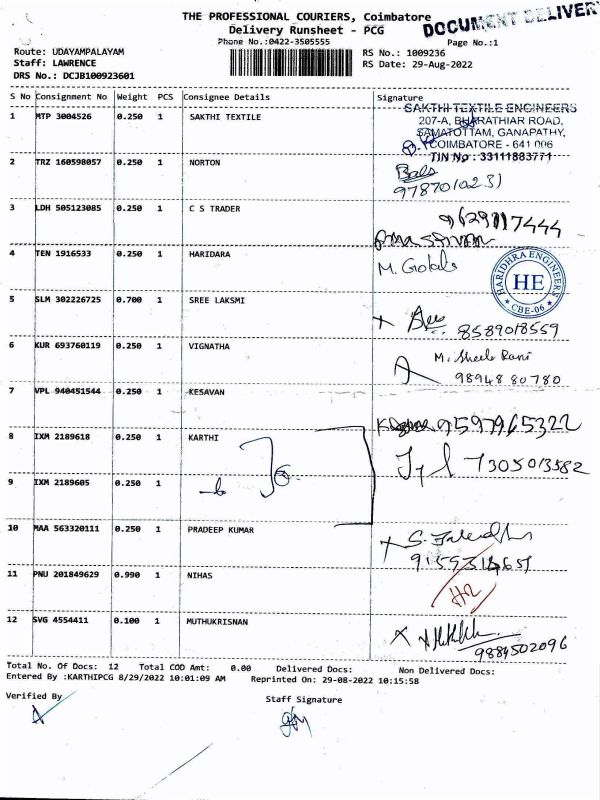 THE PROFESSIONAL COURIERS, Coimbatore
DOCUMENT DELIVERY
Delivery Runsheet - PCG
Phone No.:0422-3505555
Page No.:1
Route: UDAYAMPALAYAM
RS No.: 1009236
Staff: LAWRENCE
RS Date: 29-Aug-2022
DRS No.: DCJB100923601
S No Consignment No Weight PCS Consignee Details Signature
SAKTHI TEXTILE ENGINEERS
1 MTP 3004526 0.250 1 SAKTHI TEXTILE
207-A, BHARATHIAR ROAD,
SAMATOTTAM, GANAPATHY,
COIMBATORE - 641 006
TIN No : 33111883771
2 TRZ 160598057 0.250 1 NORTON
9787010231
3 LDH 505123085 0.250 1 C S TRADER
9629117444
4 TEN 1916533 0.250 1 HARIDARA
M.
HARIDHRA ENGINEERS
HE
CBE-06
5 SLM 302226725 0.700 1 SREE LAKSMI
8589018559
6 KUR 693760119 0.250 1 VIGNATHA
M. Sheela Rani
9894880780
7 VPL 940451544 0.250 1 KESAVAN
9597965322
8 IXM 2189618 0.250 1 KARTHI
7305013582
9 IXM 2189605 0.250 1
10 MAA 563320111 0.250 1 PRADEEP KUMAR
11 PNU 201849629 0.990 1 NIHAS
12 SVG 4554411 0.100 1 MUTHUKRISNAN
9884502096
Total No. Of Docs: 12 Total COD Amt: 0.00 Delivered Docs: Non Delivered Docs:
Entered By :KARTHIPCG 8/29/2022 10:01:09 AM Reprinted On: 29-08-2022 10:15:58
Verified By
Staff Signature